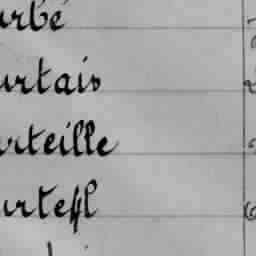 urbé
urtais
urteille
urtefl